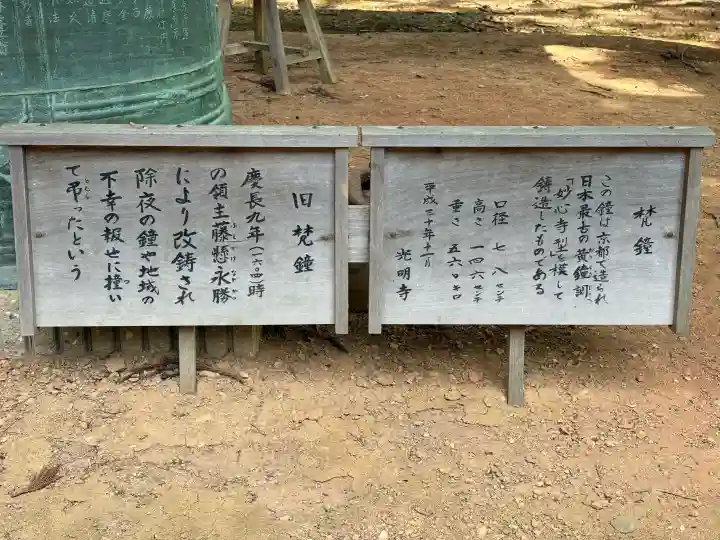 梵鐘
この鐘は京都で造られ
日本最古の黄鐘調
「妙心寺型」を模して
鋳造したものである
口径 七八センチ
高さ 一四六センチ
重さ 五六〇キロ
平成二十年十一月
光明寺
旧梵鐘
慶長九年(一六〇四)時
の領主藤懸永勝
により改鋳され
除夜の鐘や地域の
不幸の報せに撞い
て弔ったという